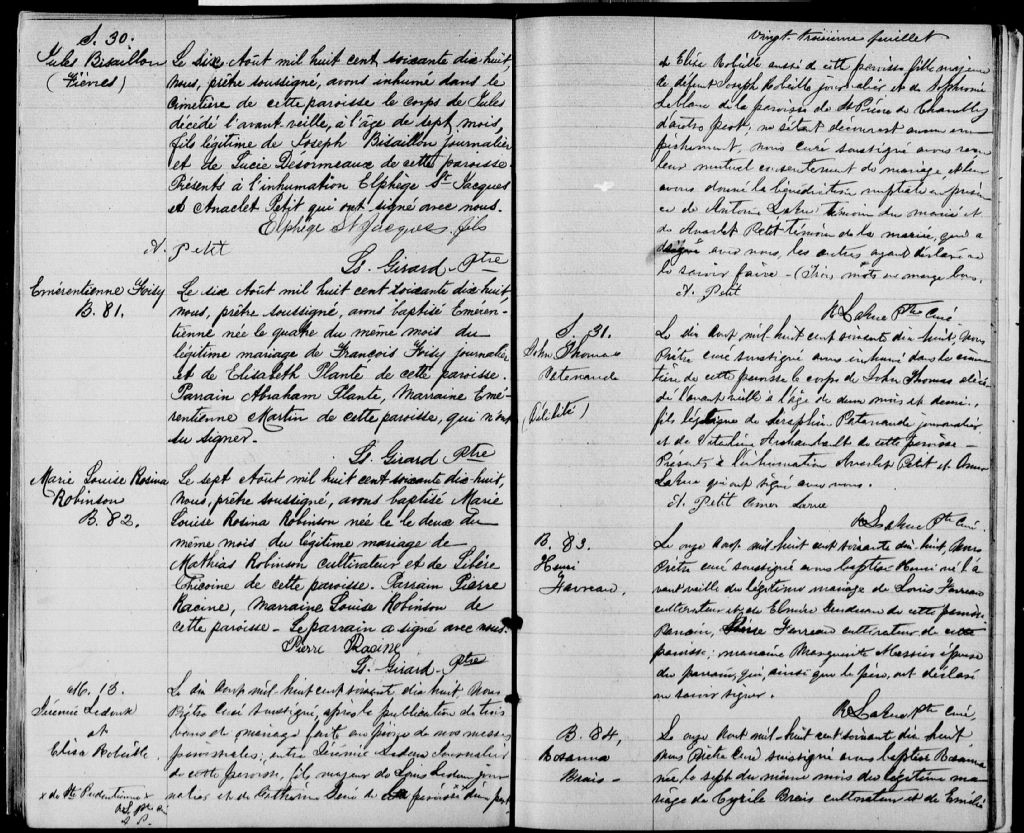 S. 30.
Jules Bisaillon
(Fièvres)
Le six Août mil huit cent soixante dix huit,
nous, prêtre soussigné, avons inhumé dans le
cimetière de cette paroisse le corps de Jules
décédé l'avant veille, à l'âge de sept mois,
fils légitime de Joseph Bisaillon journalier
et de Lucie Désormeaux de cette paroisse.
Présents à l'inhumation Elphège St Jacques
et Anaclet Petit qui ont signé avec nous.
Elphège St Jacques fils
A. Petit
Ls. Girard Ptre
Emérentienne Foisy
B. 81.
Le six Août mil huit cent soixante dix huit,
nous, prêtre soussigné, avons baptisé Eméren-
tienne née le quatre du même mois du
légitime mariage de François Foisy journalier
et de Elisabeth Plante de cette paroisse.
Parrain Abraham Plante, Marraine Emé-
rentienne Martin de cette paroisse, qui n'ont
su signer.
Ls. Girard Ptre
Marie Louise Rosina
Robinson
B. 82.
Le sept Août mil huit cent soixante dix huit,
nous, prêtre soussigné, avons baptisé Marie
Louise Rosina Robinson née le le deux du
même mois du légitime mariage de
Mathias Robinson cultivateur et de Libère
Chicoine de cette paroisse. Parrain Pierre
Racine, Marraine Louise Robinson de
cette paroisse - Le parrain a signé avec nous.
Pierre Racine
Ls. Girard Ptre
M. 13.
Jérémie Ledoux
et
Elisa Robille
Le dix Aout mil huit cent soixante dix huit Nous
Prêtre Curé soussigné, après la publication de trois
bans de mariage faite au prône de nos messes
paroissiales, entre Jérémie Ledoux Journalier
de cette paroisse, fils majeur de Louis Ledoux jour
nalier et de Catherine de paroisse d'une part
Vingt troisième feuillet
et Elisa Robille aussi de cette paroisse fille majeure
de défunt Joseph Robille journalier et de Sophronie
Leblanc de la paroisse de St Pierre de
d'autre part; ne s'étant découvert aucun em
pêchement, nous curé soussigné avons reçu
leur mutuel consentement de mariage et leur
avons donné la bénédiction nuptiale en présen
ce de Antoine témoin du marié et
de Anaclet Petit témoin de la mariée, qui a
signé avec nous, les autres ayant déclaré ne
le savoir faire - (Trois mots en marge bons.
A. Petit
Ptre Curé
S. 31.
John Thomas
Patenaude
(Débilité)
Le dix Aout mil huit cent soixante dix huit, Nous
Prêtre curé soussigné avons inhumé dans le cime
tière de cette paroisse le corps de John Thomas décé
dé l'avant veille à l'âge de deux mois et demi,
fils légitime de Séraphin Patenaude journalier
et de Vitaline Archambault de cette paroisse -
Présents à l'inhumation Anaclet Petit et Omer
qui ont signé avec nous.
A. Petit Omer Larue
Ptre Curé.
B. 83.
Henri
Favreau.
Le onze Aout mil huit cent soixante dix huit, Nous
Prêtre curé soussigné avons baptisé Henri né l'a
vant veille du légitime mariage de Louis Favreau
cultivateur et de de cette paroisse.
Parrain, Pierre Favreau cultivateur de cette
paroisse; marraine Marguerite Messier épouse
du parrain, qui, ainsi que le père, ont déclaré
ne savoir signer.
Ptre Curé,
B. 84,
Rosanna
Brais -
Le onze Aout mil huit cent soixante dix huit
Nous Prêtre Curé soussigné avons baptisé Rosanna
née le sept du même mois du légitime ma
riage de Cyrille Brais cultivateur et de Emélie